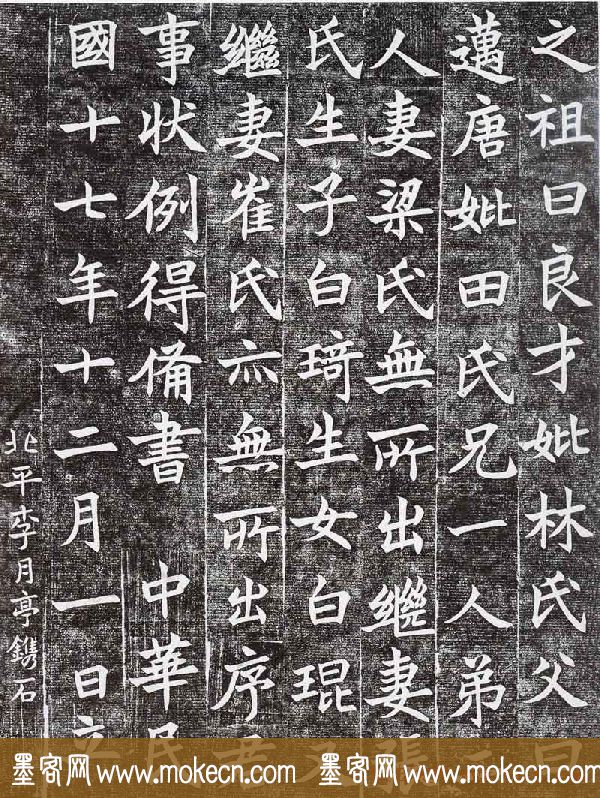 之祖曰良才妣林氏父曰
邁唐妣田氏兄一人弟
人妻梁氏無所出繼妻張
氏生子白琦生女白琨
繼妻崔氏亦無所出序
事狀例得備書 中華民
國十七年十二月一日
北平李月亭鐫石
墨客网 www.mokecn.com 墨客网 www.mokecn.com